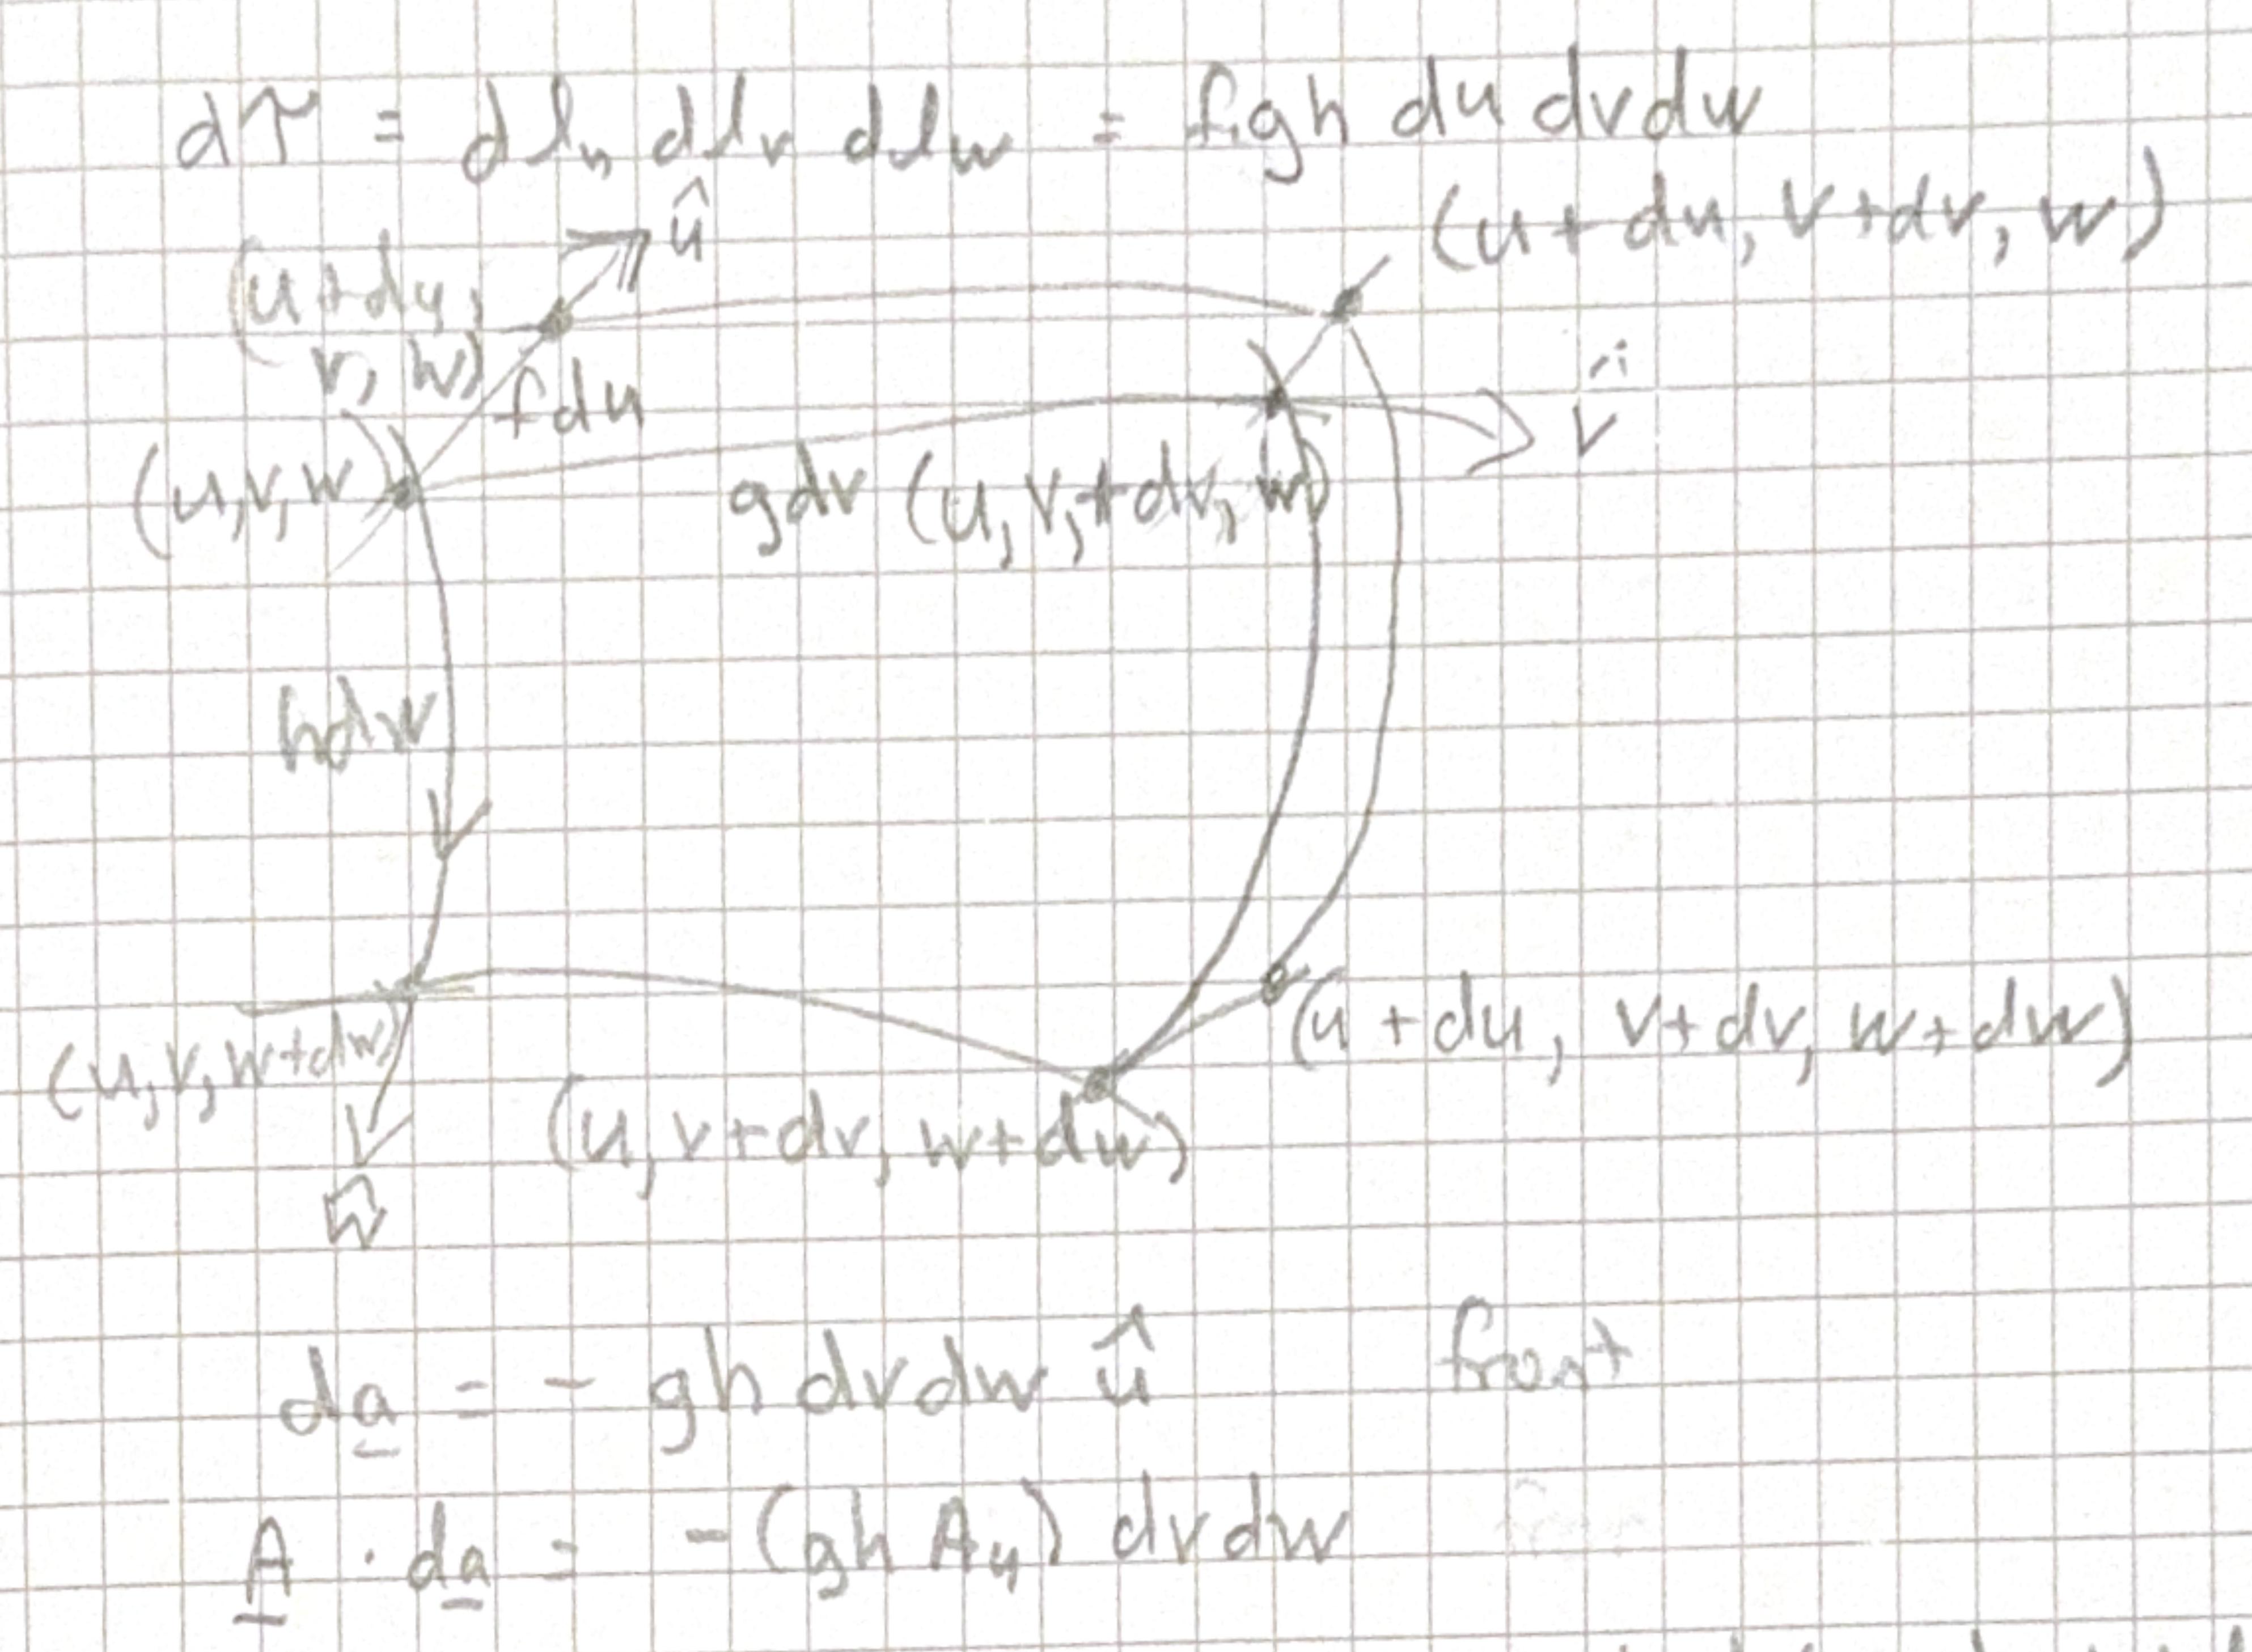 dτ = dl_u dl_v dl_w = fgh du dv dw
(u+du, v+dv, w)
û
(u+du,
v, w)
f du
v̂
(u,v,w)
gdv (u, v,+dv, w)
hdw
(u,v,w+dw)
(u+du, v+dv, w+dw)
(u,v+dv, w+dw)
ŵ
da = - gh dvdw û front
A · da = -(gh A_u) dvdw